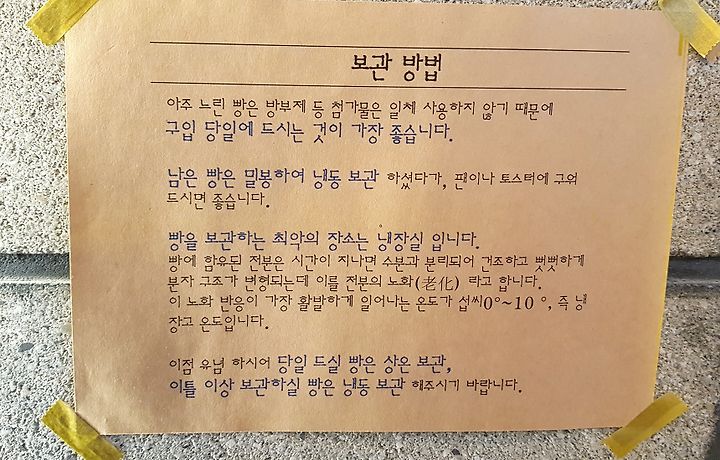 보관 방법
아주 느린 빵은 방부제 등 첨가물은 일체 사용하지 않기 때문에
구입 당일에 드시는 것이 가장 좋습니다.
남은 빵은 밀봉하여 냉동 보관 하셨다가, 팬이나 토스터에 구워
드시면 좋습니다.
빵을 보관하는 최악의 장소는 냉장실 입니다.
빵에 함유된 전분은 시간이 지나면 수분과 분리되어 건조하고 뻣뻣하게
분자 구조가 변형되는데 이를 전분의 노화(老化) 라고 합니다.
이 노화 반응이 가장 활발하게 일어나는 온도가 섭씨0°~10 °, 즉 냉
장고 온도입니다.
이점 유념 하시어 당일 드실 빵은 상온 보관,
이틀 이상 보관하실 빵은 냉동 보관 해주시기 바랍니다.